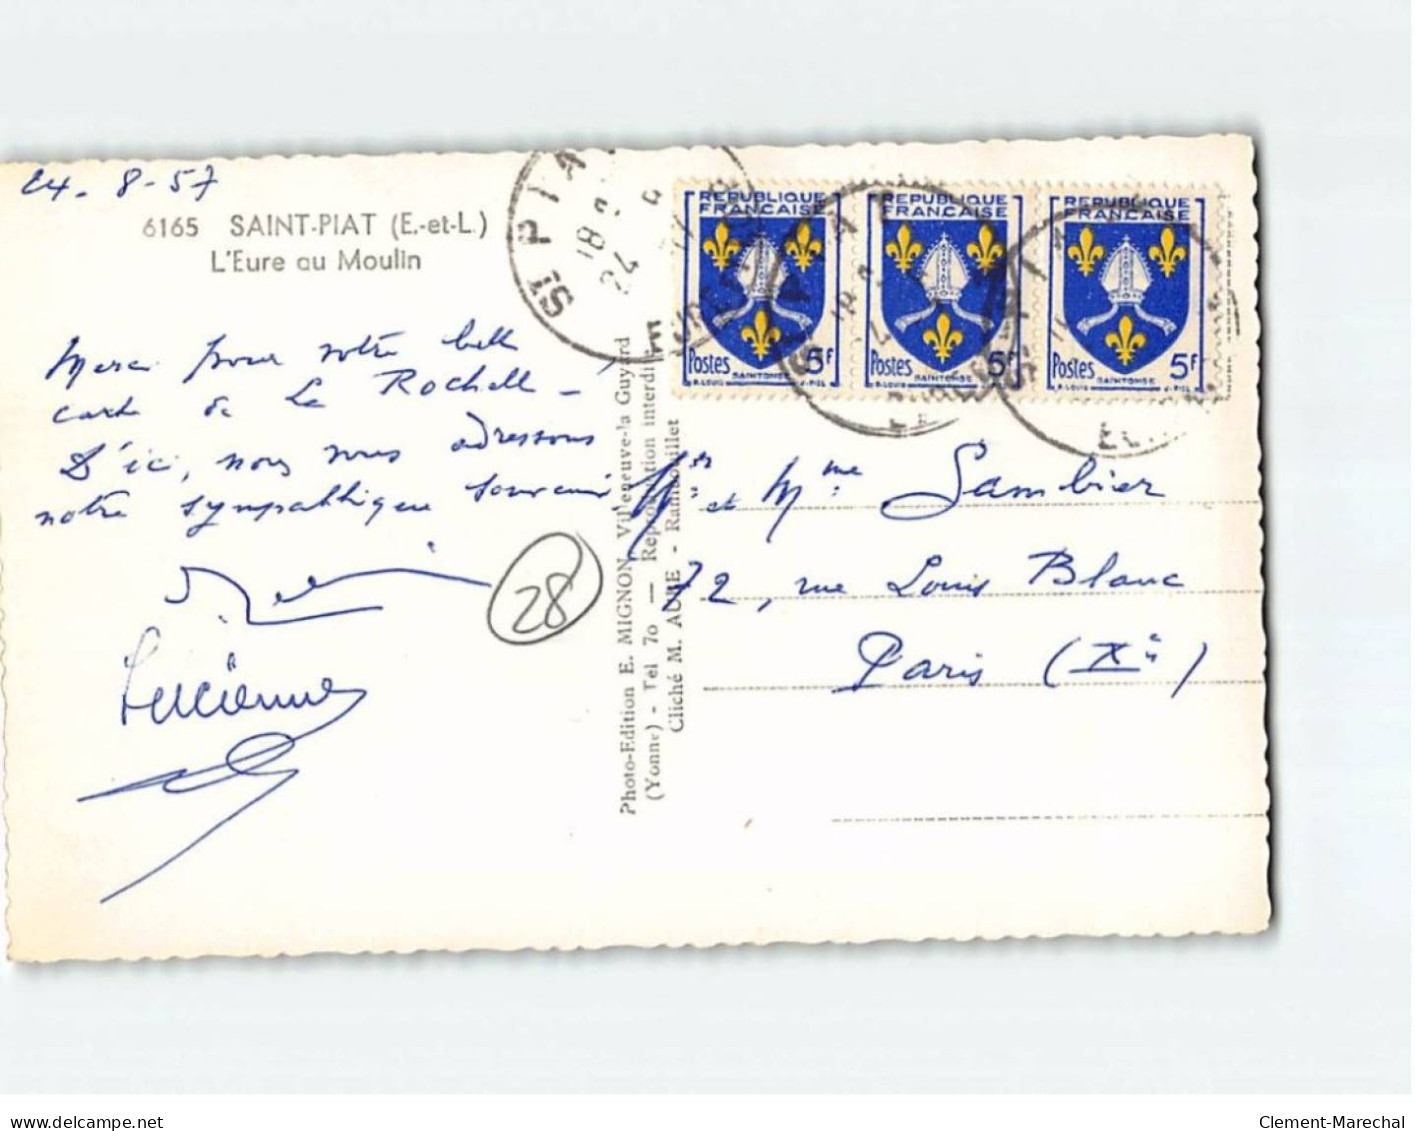 24-8-57
6165 SAINT-PIAT (E.-et-L.)
L'Eure au Moulin
Merci pour votre belle
carte de La Rochelle -
D'ici, nous vous adressons
notre sympathique souvenir
Lucienne
28
Photo-Edition E. MIGNON, Villeneuve-la Guyard
(Yonne) - Tel 70 — Reproduction interdite
Cliché M. AUBE - Rambouillet
ST PIAT
18 H
24
EURE
REPUBLIQUE
FRANCAISE
Postes 5F
SAINTONGE
R. LOUIS V. PIEL
REPUBLIQUE
FRANCAISE
Postes 5F
SAINTONGE
R. LOUIS V. PIEL
REPUBLIQUE
FRANCAISE
Postes 5F
SAINTONGE
R. LOUIS V. PIEL
Mr et Mme Sambier
72, rue Louis Blanc
Paris (Xè)
delcampe.net
Clement-Marechal